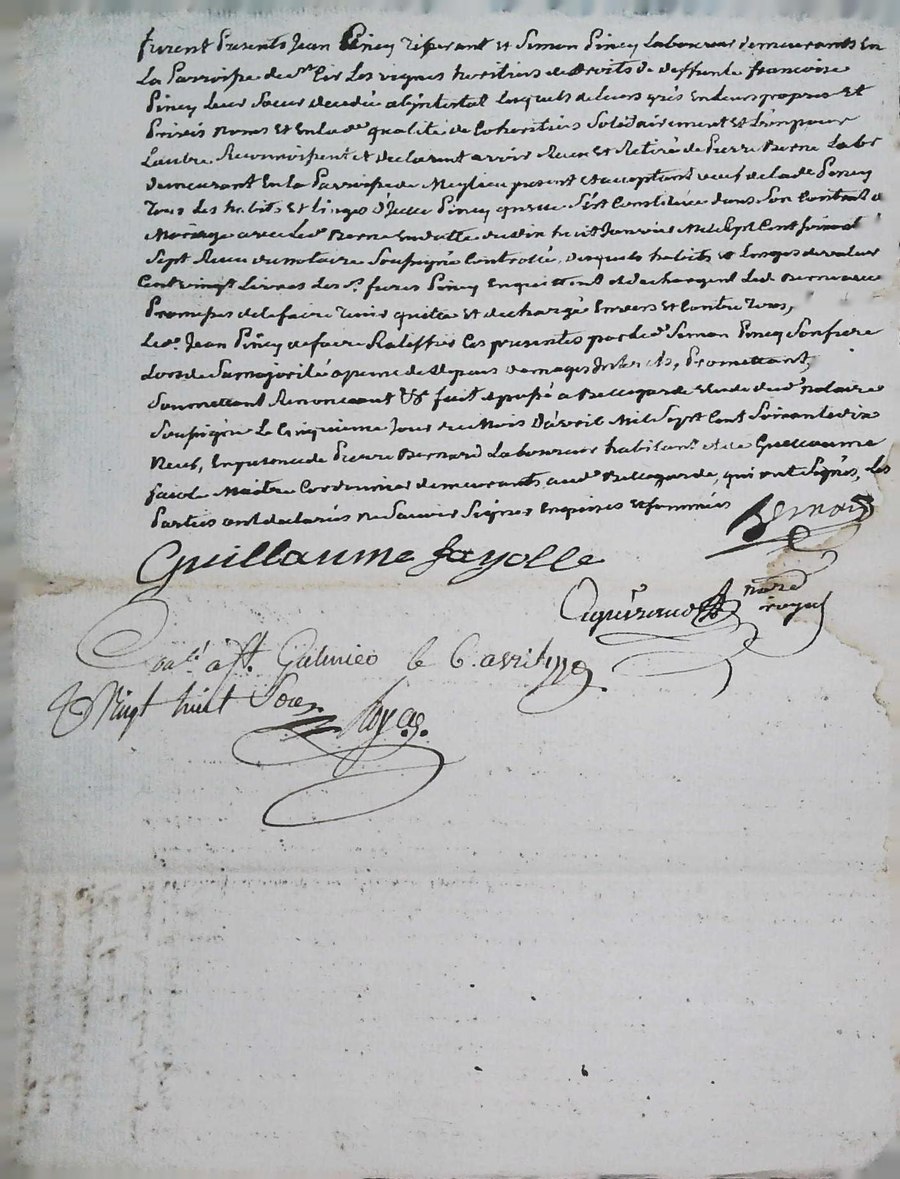 furent Presents Jean Piney tisserant et Simon Piney Laboureur demeurants En
La Parroisse de st Cir Les vignes heritiers de droits de deffunte francoise
Piney Leur soeur decedée abjntestat Lesquels de leurs grés En leurs propres Et
Privés noms et En lad.e qualité de Coheritiers Solidairement et L'un pour
Lautre Reconnoissent et declarent avoir Receu et Retiré de Pierre Berne Labr
demeurant En la Parroisse de present et acceptant veuf de lad.e Piney
Tous Les habits et linges d'jcelle Piney quelle s'est Constituée dans Son Contrat de
Mariage avec Led. Berne En datte du dix huit Janvier Mil Sept Cent soixante
Sept Receu du notaire Soussigné Controllé, desquels habits et Linges de valeur
Cent vingt Livres Les d. freres Piney En quittent et dechargent Led. Berne avec
Promesses de le faire Tenir quitte et dechargé Envers et Contre Tous,
Led. Jean Piney de faire Ratiffier Ces presentes par led. Simon Piney Son frere
Lors de Sa majorité a peine de tous depens damages Interets, Promettant,
Soumettant Renoncant &c fait et passé a Bellegarde Etude dud. notaire
Soussigné Le Cinquieme Jour du Mois D'avril Mil Sept Cent Soixante dix
Neuf, En presence de Pierre Bernard Laboureur habitant et de Guillaume
faiole Maitre Cordonnier demeurants aud. Bellegarde, qui ont Signés, Les
Parties ont declarés ne Savoir Signer Enquises et sommées
Bernard
Guillaume fayolle
nore royal
Con.lé a st. Galmier le 6. avril 1779.
R Vingt huit Sols
Royas.